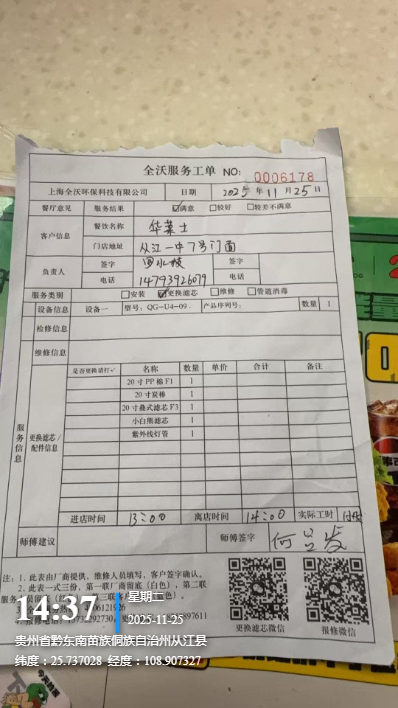 全沃服务工单 NO: 0006178
上海全沃环保科技有限公司 日期 2025年11月25日
餐厅意见 服务结果 ☑满意 □较好 □较差不满意
客户信息 餐饮名称 华莱士
门店地址 从江一中7号门面
负责人 签字 签字
电话 14793926079 电话
服务类别 □安装 ☑更换滤芯 □维修 □管道消毒
设备信息 设备一 型号: QG-U4-09. 产品序列号: 数量 1
检修信息
维修信息
服务信息 更换滤芯/配件信息 是否更换请打√ 名称 数量 单价 合计 备注
20寸PP棉F1 1
20寸炭棒 1
20寸叠式滤芯F3 1
小白熊滤芯 1
紫外线灯管 1
进店时间 13:00 离店时间 14:00 实际工时
师傅建议 师傅签字
注: 1. 此表由厂商提供, 维修人员填写, 客户签字确认。
2. 此表一式三份, 第一联厂商留底(白色), 第二联
更换滤芯微信 报修微信
14:37 星期二
2025-11-25
贵州省黔东南苗族侗族自治州从江县
纬度: 25.737028 经度: 108.907327